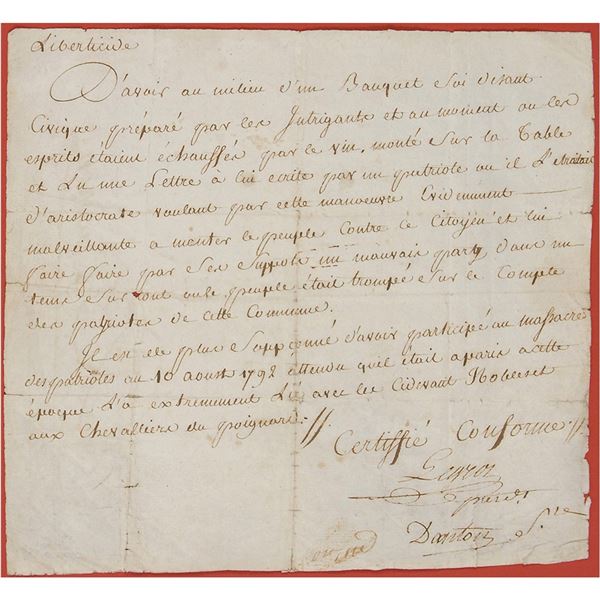 Liberticide
D'avoir au milieu d'un Banquet Soi disant
Civique préparé par les Intrigants et au moment ou les
esprits étaient échauffés par le vin, monté Sur la Table
et Lu une Lettre à lui écrite par un patriote ou il L'
d'aristocrate voulant par cette manoeuvre Evidemment
malveillante a monter le peuple Contre ce Citoyen et lui
faire faire par Ses Suppots un mauvais party dans un
tems Sur tout ou le peuple était trompé Sur le Compte
des patriotes de Cette Commune.
Il est de plus Soupçonné d'avoir participé au massacre
des patriotes au 10 aoust 1792 attendu qu'il était a paris a cette
époque L'a extremement Lié avec les Cidivant Nobles et
aux Chevalliers du poignard.//.
Certiffié Conforme//.
présdt
Danton S.re